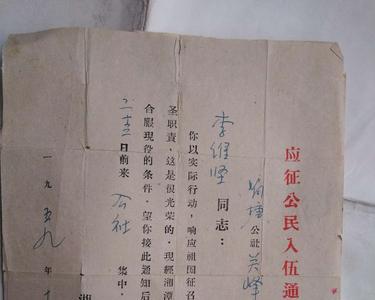 应征公民入伍通
公社
李维坚 同志：
你以实际行动，响应祖国征召
圣职责，这是很光荣的。现经湘潭
合服现役的条件。望你接此通知后
日前来 公社 集中，
湘
一九五九年十